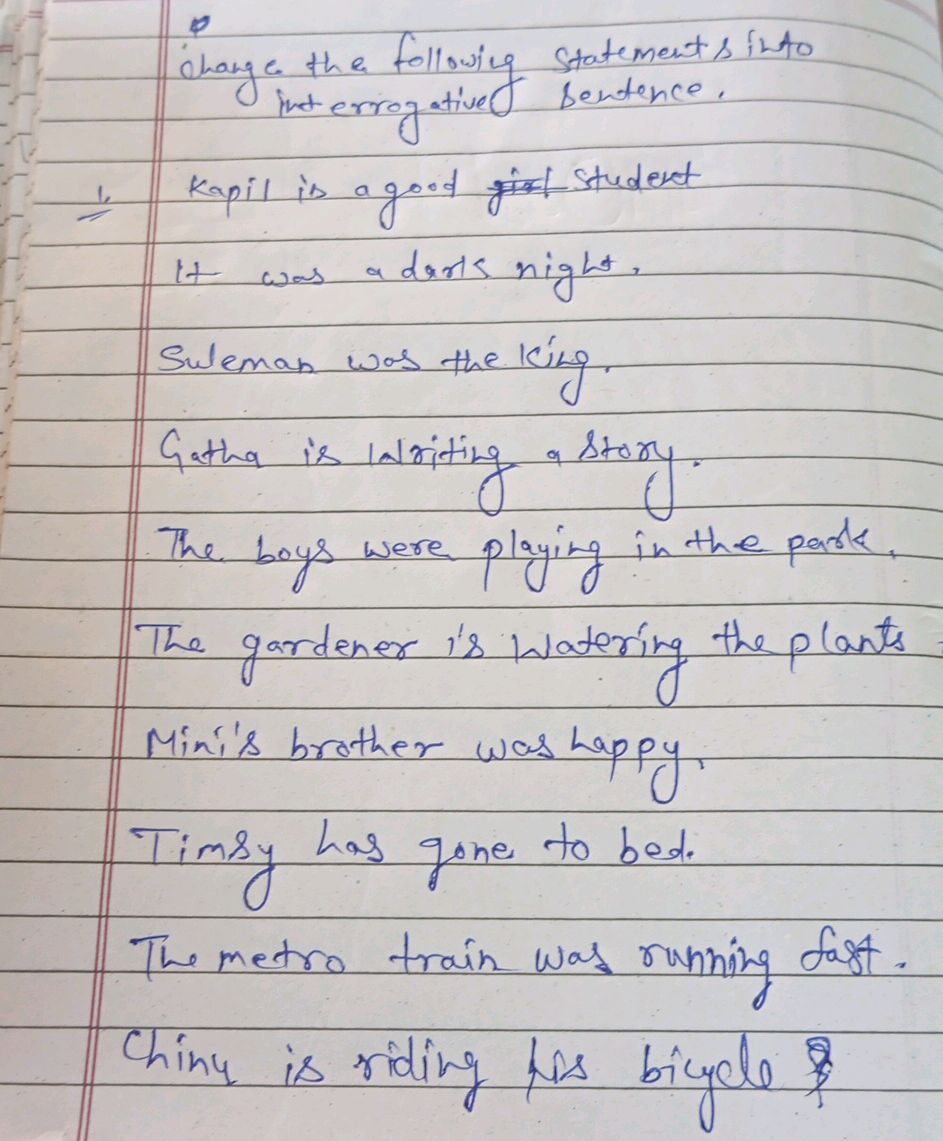 change the following statements into
interrogative sentence.
1. Kapil is a good student
It was a dark night.
Suleman was the King.
Gatha is Writing a story.
The boys were playing in the park.
The gardener is Watering the plants
Mini's brother was happy.
Timsy has gone to bed.
The metro train was running fast.
Chinu is riding his bicycle